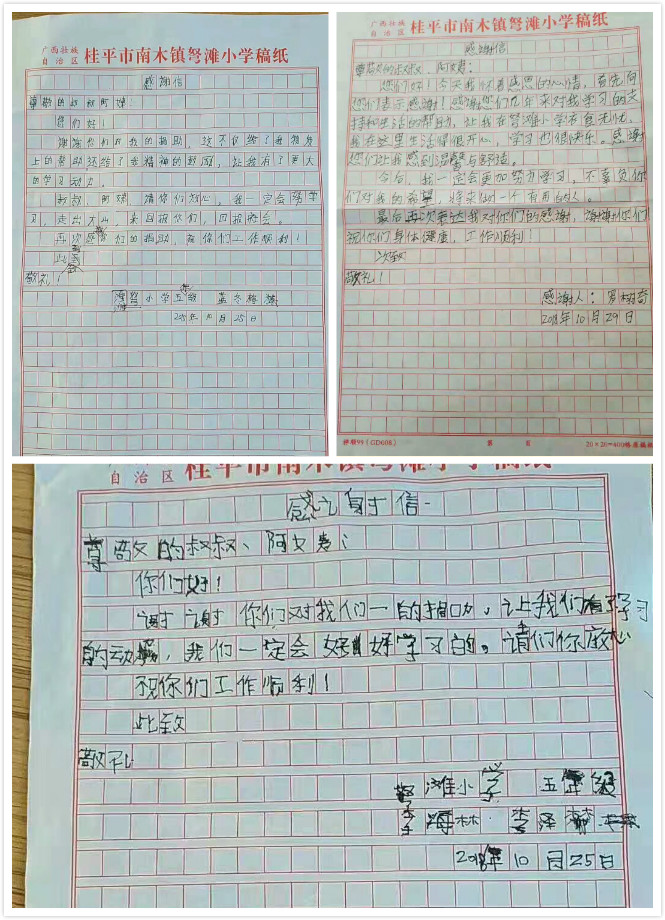 广西壮族
自治区 桂平市南木镇弩滩小学稿纸
感谢信
尊敬的叔叔阿姨:
您们好!
谢谢您们对我的捐助,这不仅给了我物质
上的帮助,还给了我精神的鼓励,让我有了更大
的学习动力。
叔叔,阿姨,请你们放心,我一定会努学
习,走出大山,来回报你们,回报社会。
再次感谢你们的捐助,祝你们工作顺利!
此致
敬礼!
弩滩小学五年级
2018年10月25日
广西壮族
自治区 桂平市南木镇弩滩小学稿纸
感谢信
尊敬的叔叔、阿姨:
您们好!今天我怀着感恩的心情,首先向
您们表示感谢!感谢您们几年来对我学习的支
持和生活的帮助,让我在弩滩小学衣食无忧,
我在这里生活得很开心,学习也很快乐。感谢
您们让我感到温馨与舒适。
今后,我一定会更加努力学习,不辜负你
们对我的希望,将来做一个有用的人。
最后再次表达我对你们的感谢,谢谢你们
祝你们身体健康,工作顺利!
次致
敬礼!
感谢人:罗
2018年10月29日
(GD608) 第 页 20×20=400
自治区 桂平市南木镇弩滩小学稿纸
感谢信
尊敬的叔叔、阿姨:
你们好!
谢谢你们对我们一的捐助,让我们有了学习
的动力,我们一定会好好学习的。请们你放心
祝你们工作顺利!
此致
敬礼
弩滩小学 五年级
李海林 李泽
2018年10月25日